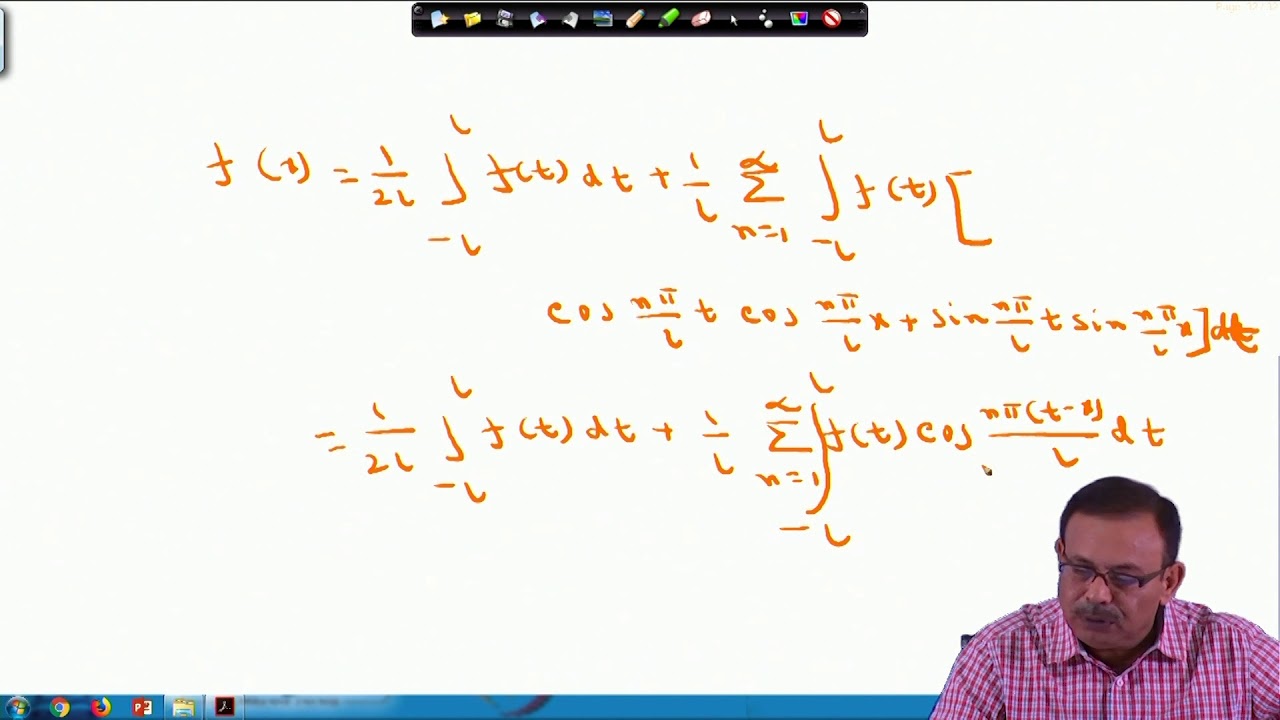 Page 32/32
f(x) = 1/2l ∫_{-l}^{l} f(t) dt + 1/l ∑_{n=1}^{∞} ∫_{-l}^{l} f(t) [
cos nπ/l t cos nπ/l x + sin nπ/l t sin nπ/l x] dt
= 1/2l ∫_{-l}^{l} f(t) dt + 1/l ∑_{n=1}^{∞} ∫_{-l}^{l} f(t) cos nπ(t-x)/l dt